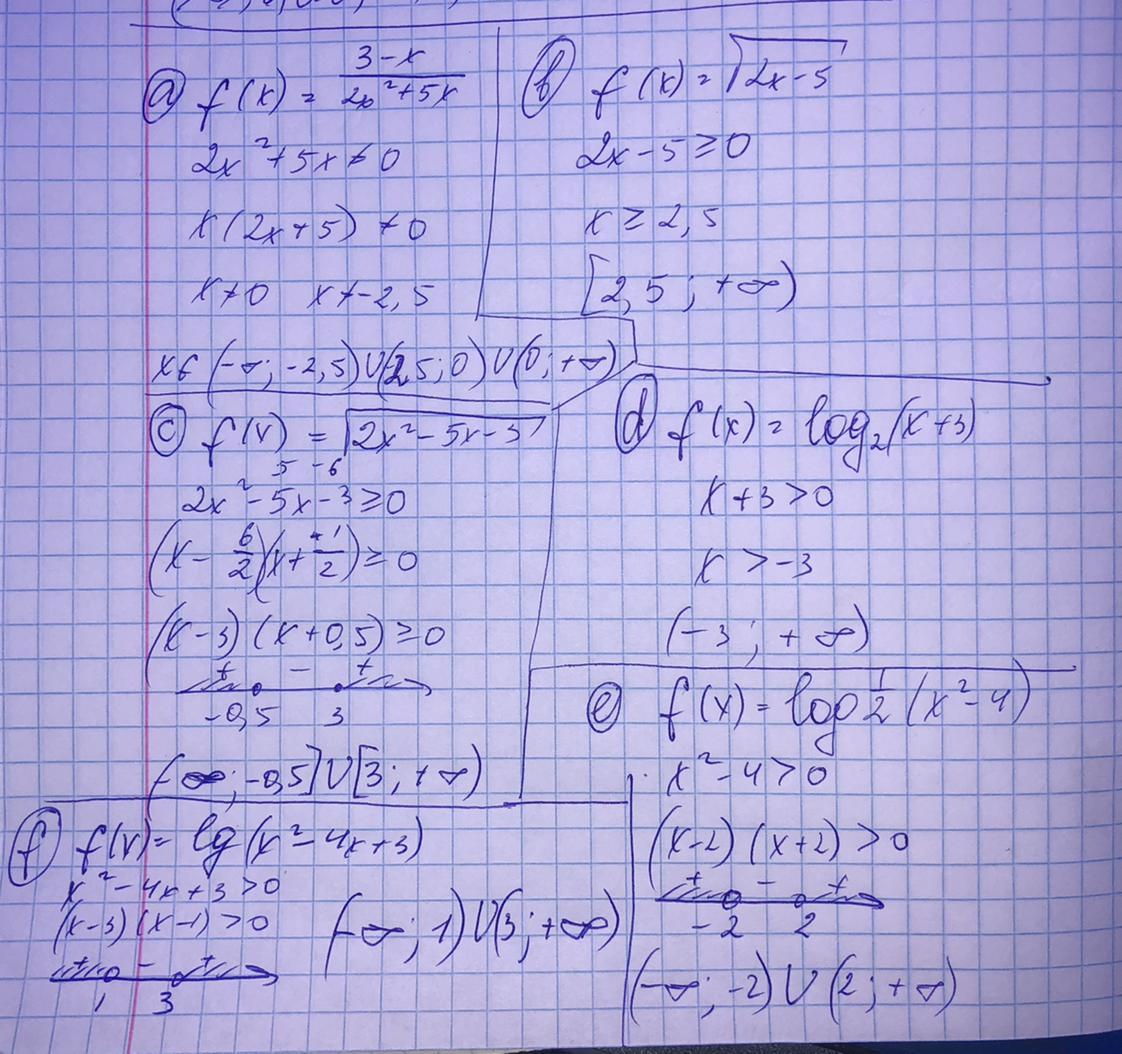 (a) f(x) = (3-x)/(2x²+5x)
2x²+5x≠0
x(2x+5) ≠0
x≠0 x≠-2,5
x∈(-∞; -2,5)∪(2,5;0)∪(0;+∞)
(b) f(x) = √(2x-5)
2x-5≥0
x ≥ 2,5
[2,5; +∞)
(c) f(x) = √(2x²-5x-3)
5 -6
2x²-5x-3≥0
(x- 6/2)(x+ 1/2)≥0
(x-3)(x+0,5)≥0
+ - +
-0,5 3
(-∞;-0,5]∪[3;+∞)
(d) f(x) = log₂(x+3)
x+3>0
x >-3
(-3; +∞)
(e) f(x) = log 1/2 (x²-4)
x²-4>0
(x-2)(x+2)>0
+ - +
-2 2
(-∞;-2)∪(2;+∞)
(f) f(x) = lg(x²-4x+3)
x²-4x+3>0
(x-3)(x-1)>0
+ - +
1 3
(-∞;1)∪(3;+∞)